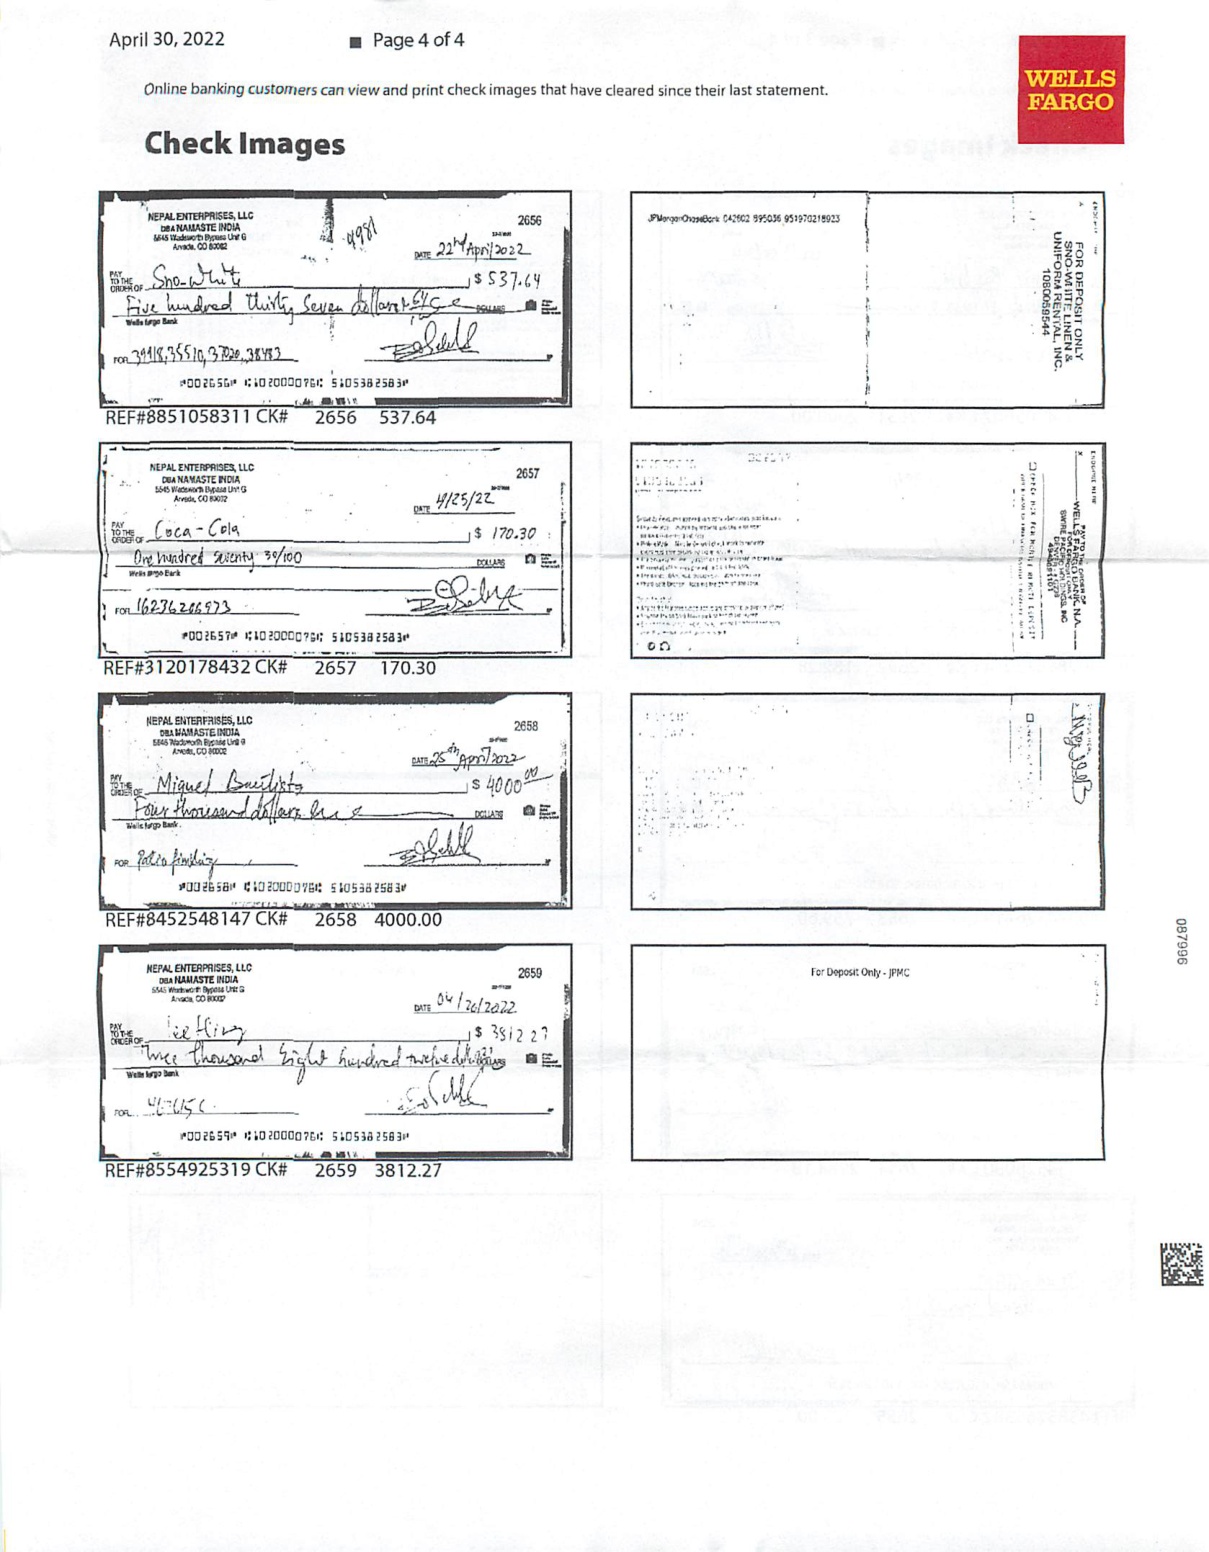 April 30, 2022 ■ Page 4 of 4
Online banking customers can view and print check images that have cleared since their last statement.
WELLS
FARGO
Check Images
NEPAL ENTERPRISES, LLC
DBA NAMASTE INDIA
5545 Wadsworth Bypass Unit G
Arvada, CO 80002
2656
DATE 22nd April/2022
PAY TO THE ORDER OF Sno-White $ 537.64
Five hundred thirty Seven dollars & 64 DOLLARS
Wells Fargo Bank
FOR
⑈002656⑈ ⑆102000076⑆ 5105382583⑈
REF#8851058311 CK# 2656 537.64
JPMorganChaseBank
FOR DEPOSIT ONLY
SNO-WHITE LINEN &
UNIFORM RENTAL, INC.
1080059544
NEPAL ENTERPRISES, LLC
DBA NAMASTE INDIA
5545 Wadsworth Bypass Unit G
Arvada, CO 80002
2657
DATE 4/25/22
PAY TO THE ORDER OF Coca-Cola $ 170.30
One hundred Seventy 30/100 DOLLARS
Wells Fargo Bank
FOR 16236206973
⑈002657⑈ ⑆102000076⑆ 5105382583⑈
REF#3120178432 CK# 2657 170.30
PAY TO THE ORDER OF
WELLS FARGO BANK, N.A.
NEPAL ENTERPRISES, LLC
DBA NAMASTE INDIA
5545 Wadsworth Bypass Unit G
Arvada, CO 80002
2658
DATE 25th April/2022
PAY TO THE ORDER OF Miguel Bautista $ 4000.00
Four thousand dollars DOLLARS
Wells Fargo Bank
FOR Patio finishing
⑈002658⑈ ⑆102000076⑆ 5105382583⑈
REF#8452548147 CK# 2658 4000.00
NEPAL ENTERPRISES, LLC
DBA NAMASTE INDIA
5545 Wadsworth Bypass Unit G
Arvada, CO 80002
2659
DATE 04/26/2022
PAY TO THE ORDER OF $ 3812.27
Three thousand Eight hundred twelve DOLLARS
Wells Fargo Bank
FOR
⑈002659⑈ ⑆102000076⑆ 5105382583⑈
REF#8554925319 CK# 2659 3812.27
For Deposit Only - JPMC
087996